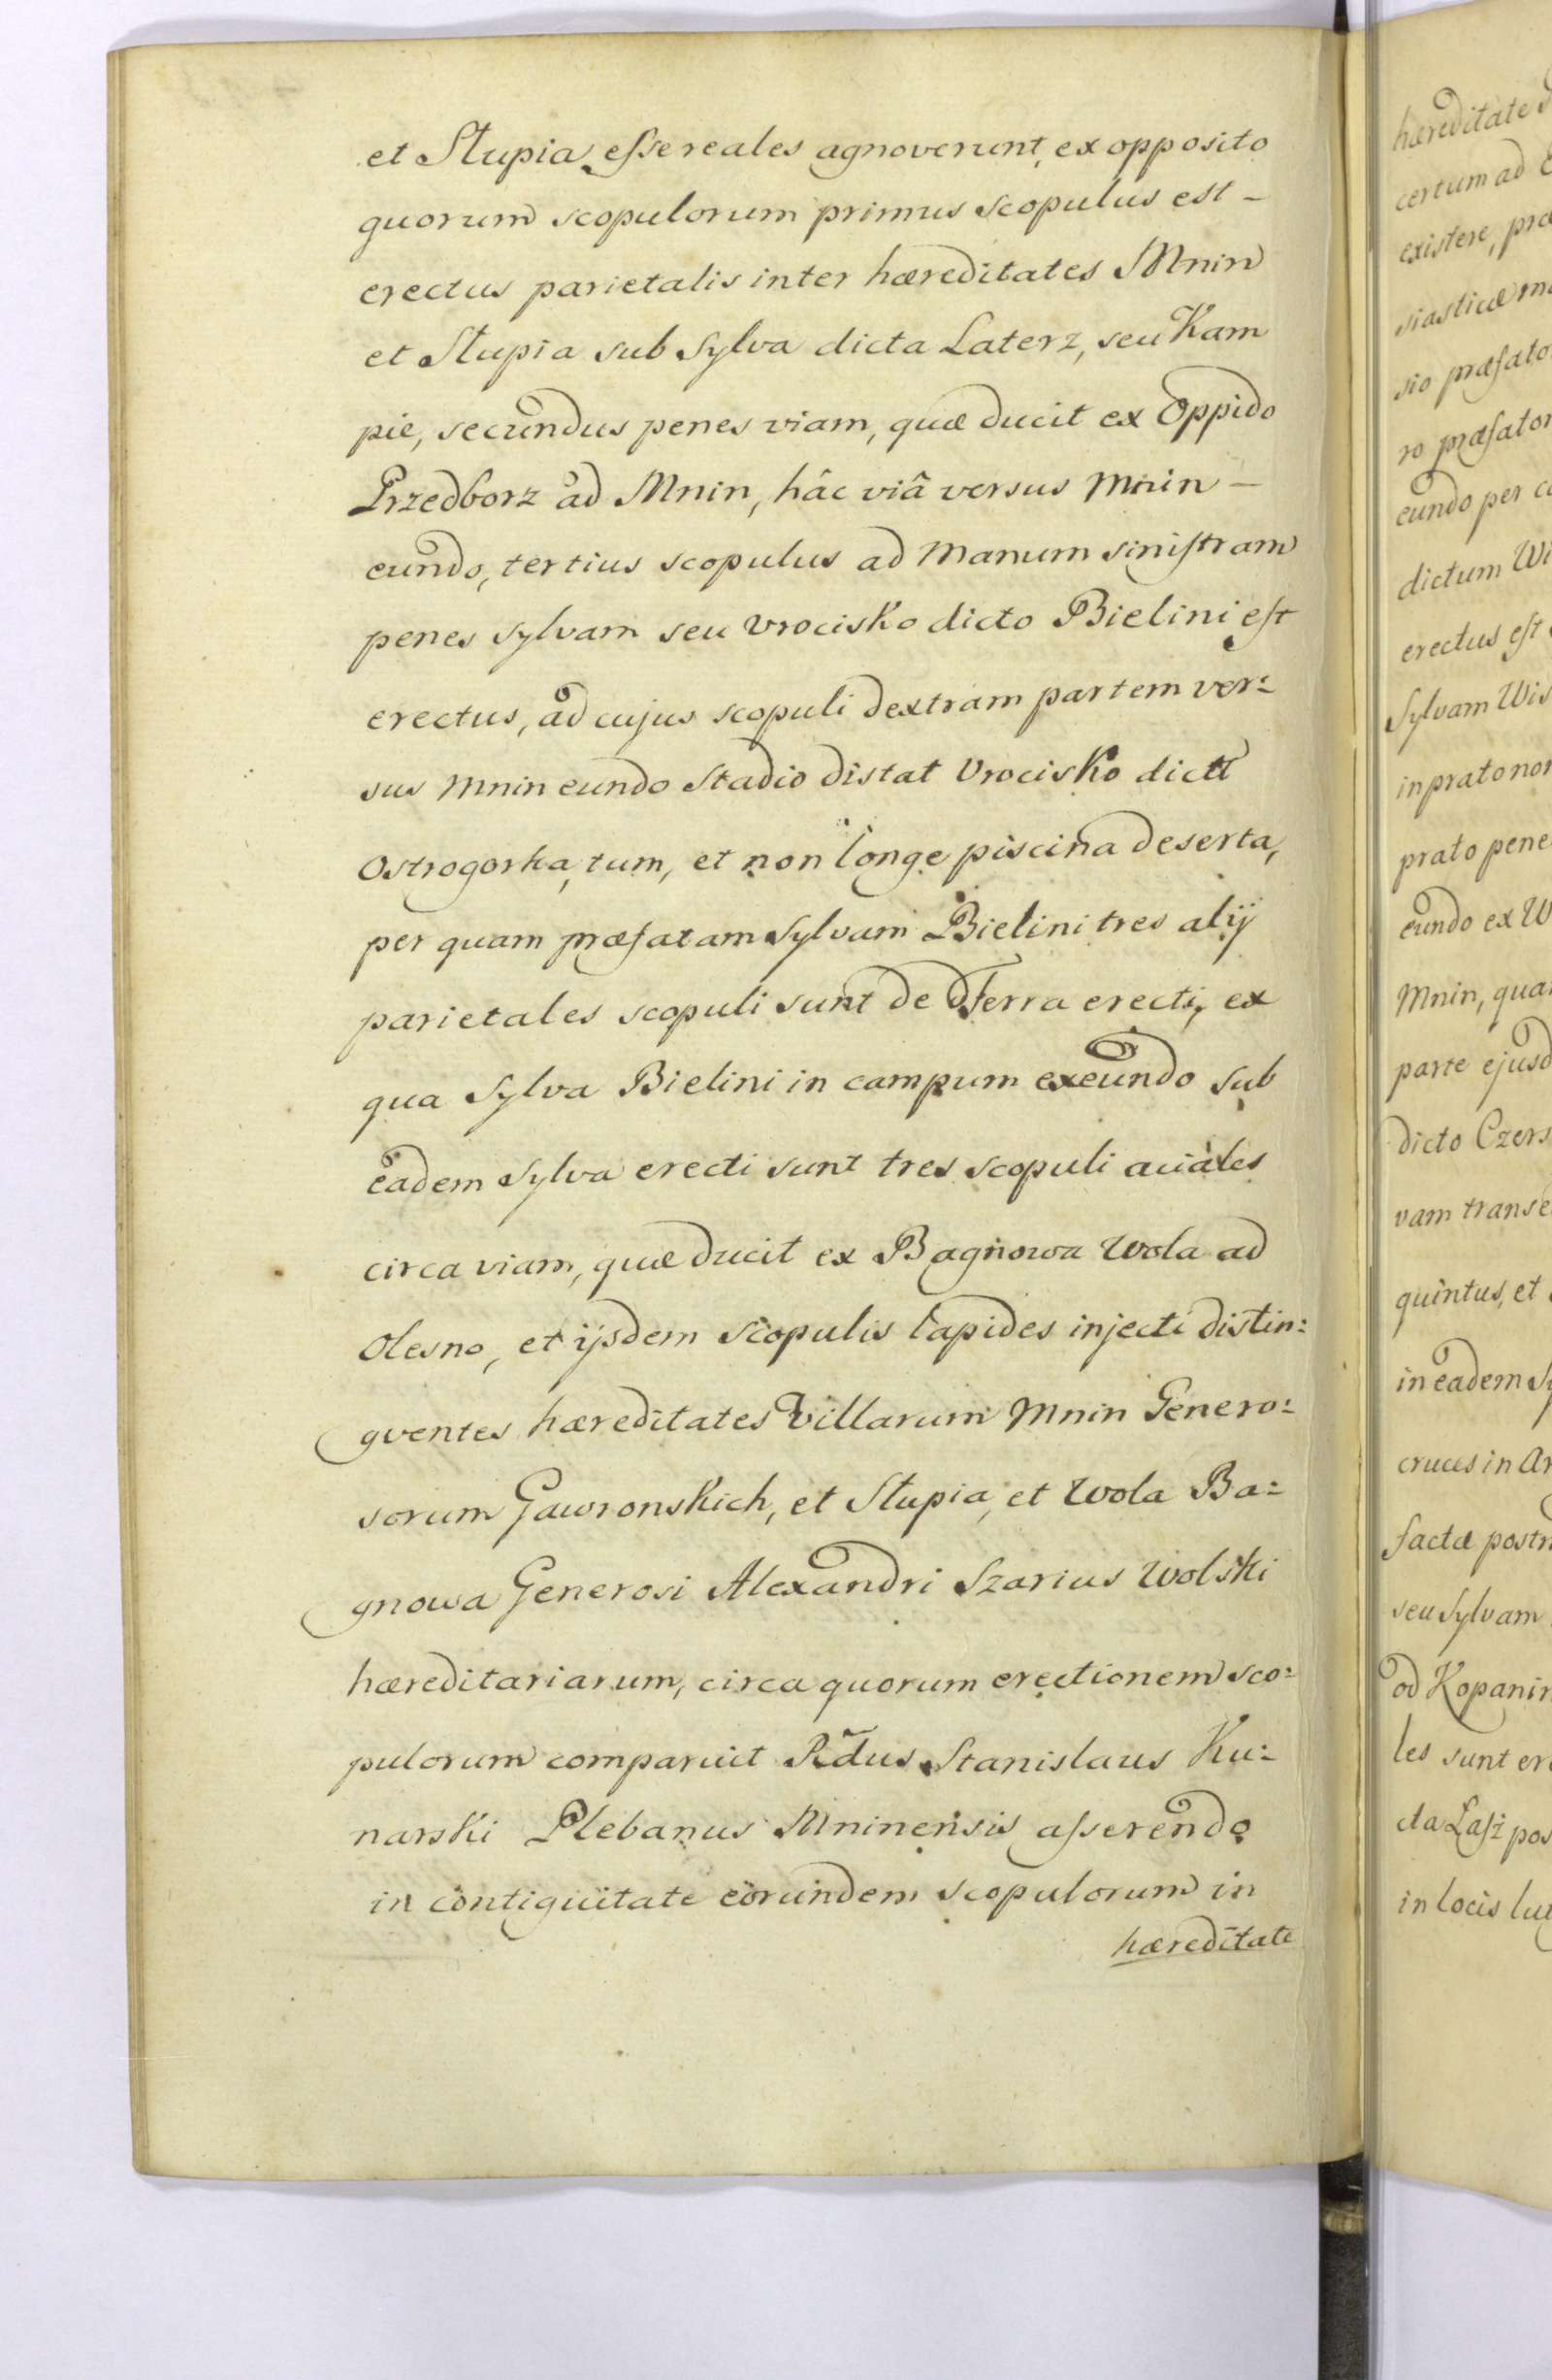 et Słupia esse reales agnoverunt, ex opposito
quorum scopulorum primus scopulus est –
erectus parietalis inter hæreditates Mnin
et Słupia sub Sylva dicta Laterz, seu Kam
pie, secundus penes viam, quæ ducit ex Oppido
Przedborz ad Mnin, hâc viâ versus Mnin –
eundo, tertius scopulus ad manum sinistram
penes sylvam seu Vrocisko dicto Bielini est
erectus, ad cujus scopuli dextram partem ver:
sus Mnin eundo Stadio distat Vrocisko dict
Ostrogorka, tum, et non longe piscina deserta,
per quam præfatam Sylvam Bielini tres alij
parietales scopuli sunt de Terra erecti, ex
qua Sylva Bielini in campum exeundo sub
eadem Sylva erecti sunt tres scopuli aciales
circa viam, quæ ducit ex Bagnowa Wola ad
Olesno, et ijsdem scopulis lapides injecti distin:
gventes hæreditates Villarum Mnin Genero:
sorum Gawronskich, et Słupia, et Wola Ba:
gnowa Generosi Alexandri Szarius Wolski
hæreditariarum, circa quorum erectionem sco:
pulorum comparuit Rd̃us Stanislaus Ku:
narski Plebanus Mninensis asserendo
in contiguitate eorundem scopulorum in
hæreditate
hæreditate
certum ad
existere, præ
siasticæ
sio præfato
ro præfator
eundo per
dictum Wi
erectus est
Sylvam Wis
in prato non
prato pene
eundo ex W
Mnin, qua
parte ejusd
dicto Czers
vam transe
quintus, et
in eadem Sy
cruces in Ar
factæ postr
seu Sylvam
od Kopanin
les sunt er
cta Lasz pos
in locis lut